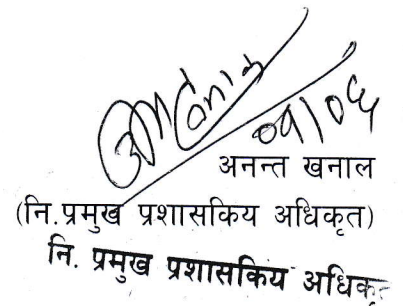 ०१।०६
अनन्त खनाल
(नि.प्रमुख प्रशासकिय अधिकृत)
नि. प्रमुख प्रशासकिय अधिकृत